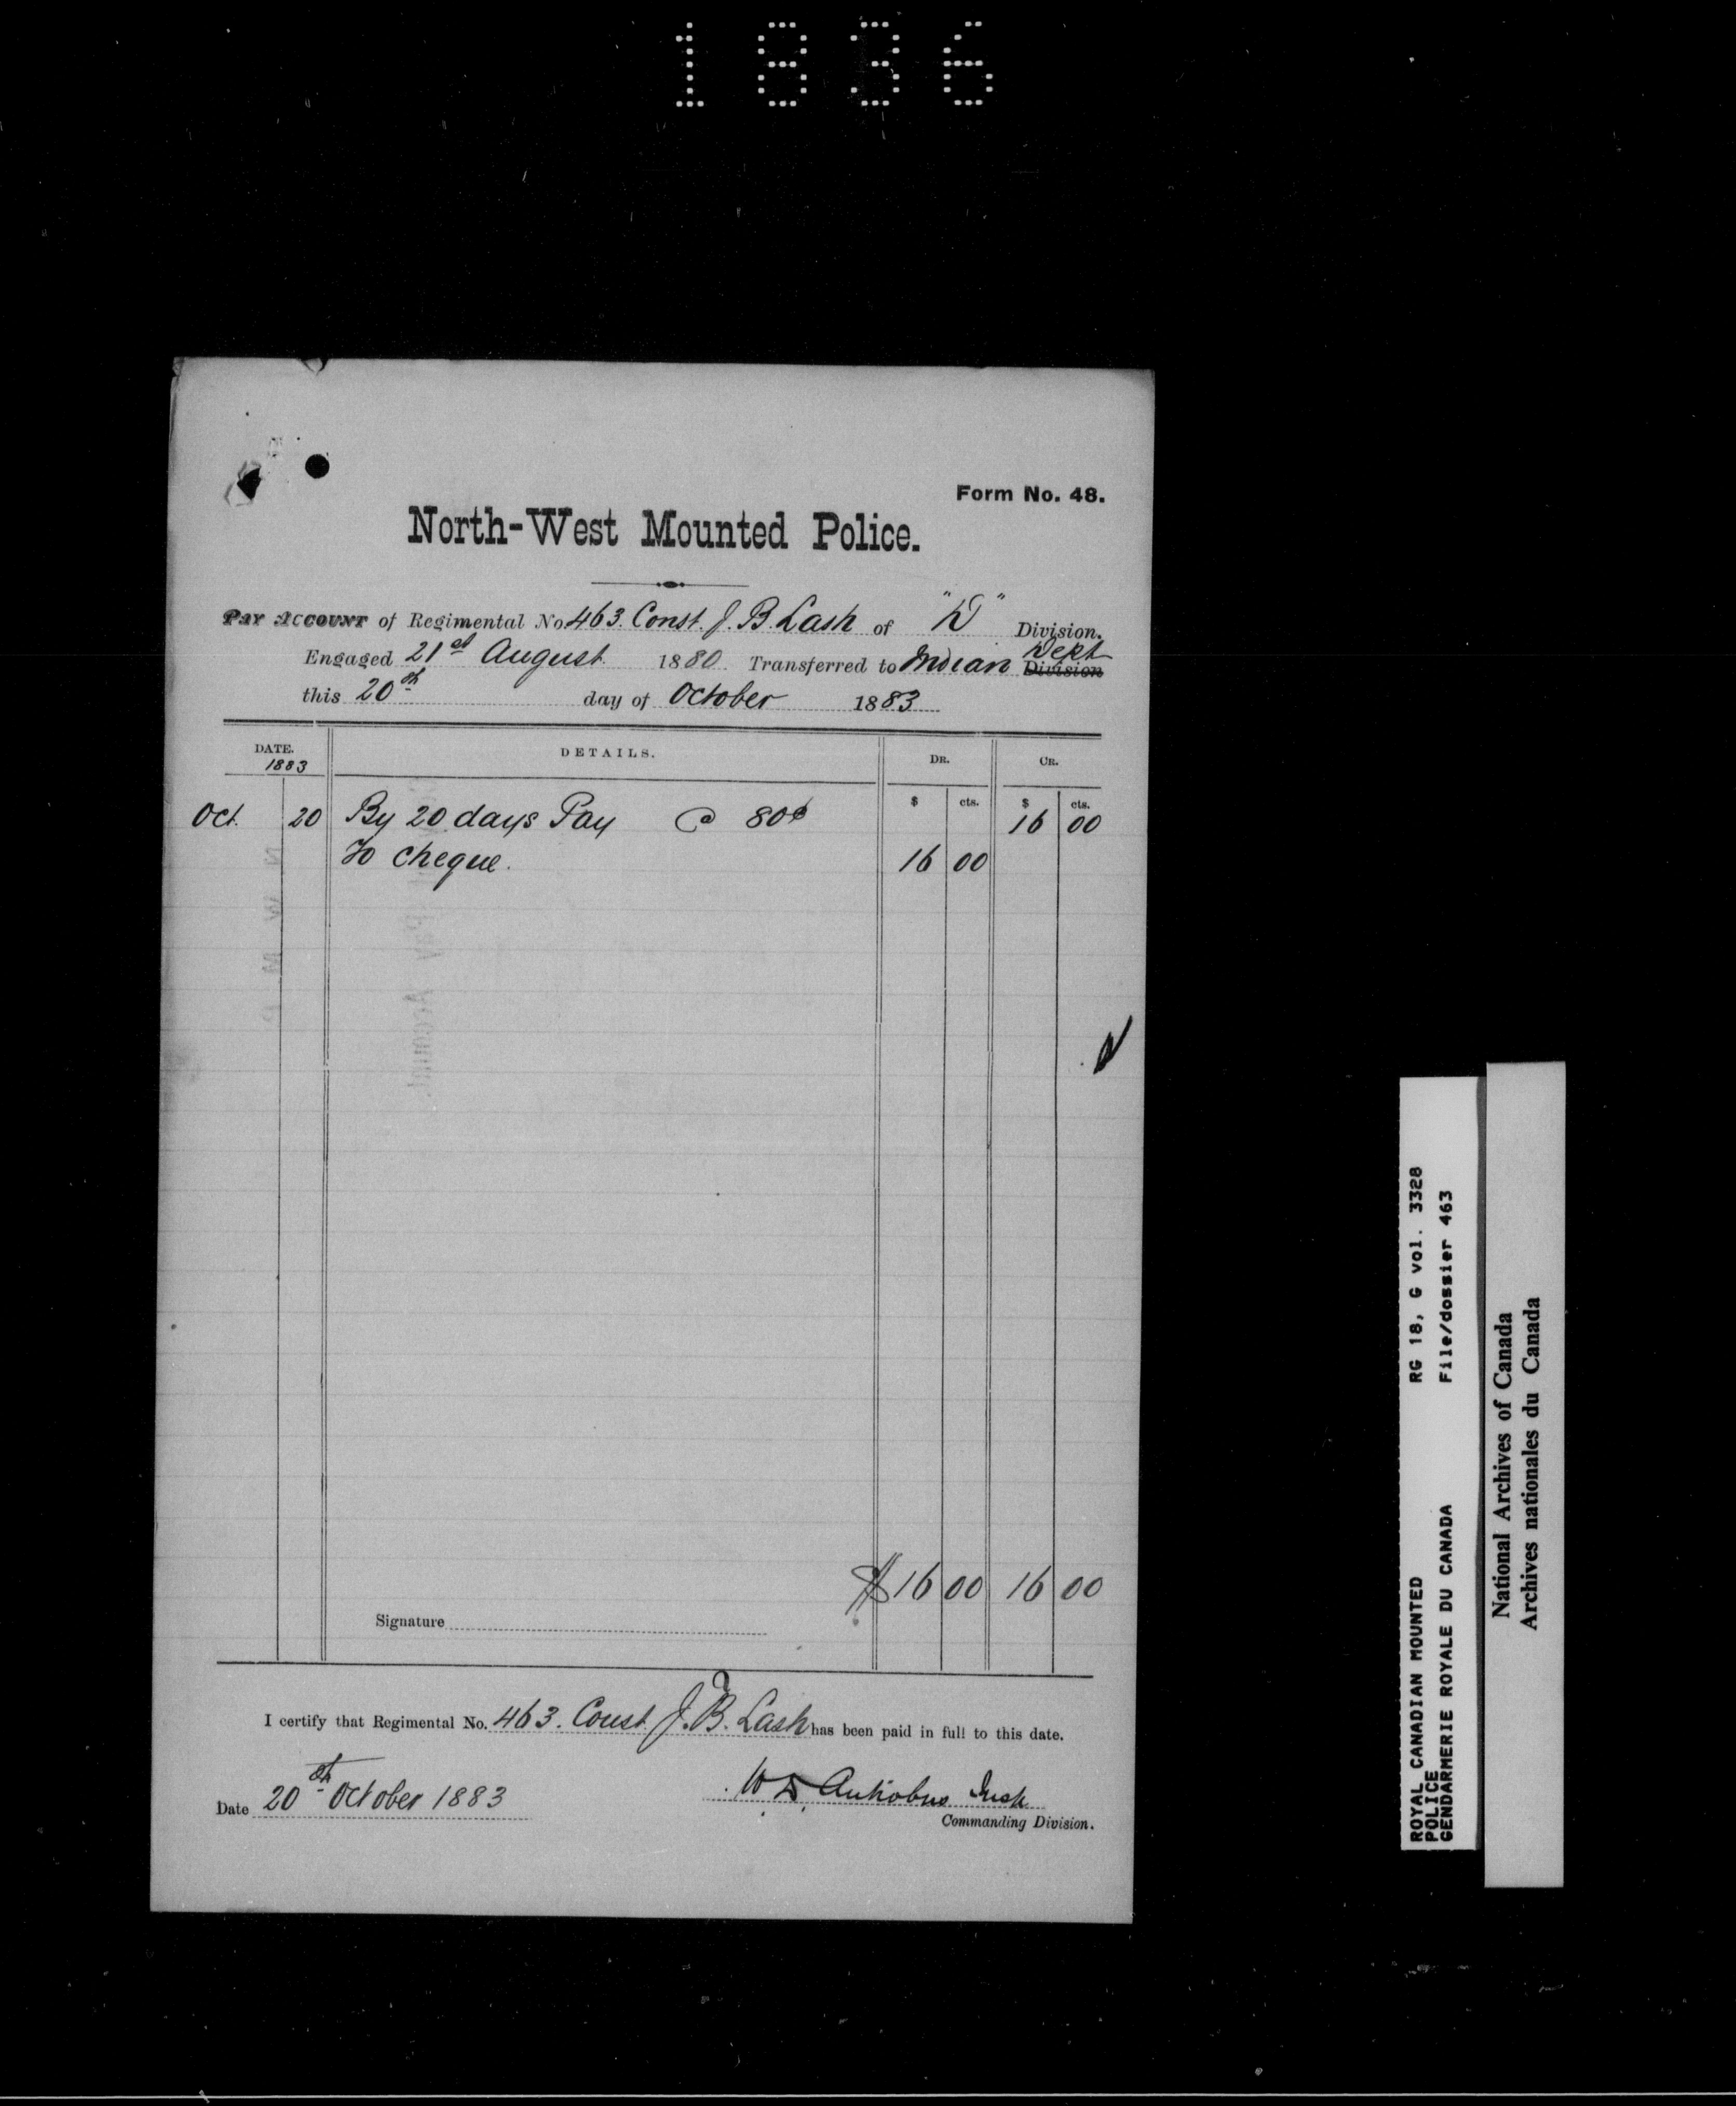 1836
Form No. 48.
North-West Mounted Police.
PAY ACCOUNT of Regimental No. 463. Const. J. B. Lash of "D" Division.
Engaged 21st August 1880 Transferred to Indian Division Dept
this 20th day of October 1883
DATE. DETAILS. DR. CR.
1883
$ cts. $ cts.
Oct. 20 By 20 days Pay @ 80¢ 16 00
To cheque. 16 00
$16 00 16 00
Signature
I certify that Regimental No. 463. Const. J. B. Lash has been paid in full to this date.
Date 20th October 1883
W D Antrobus Insp
Commanding Division.
ROYAL CANADIAN MOUNTED RG 18, G vol. 3328
POLICE
GENDARMERIE ROYALE DU CANADA File/dossier 463
National Archives of Canada
Archives nationales du Canada